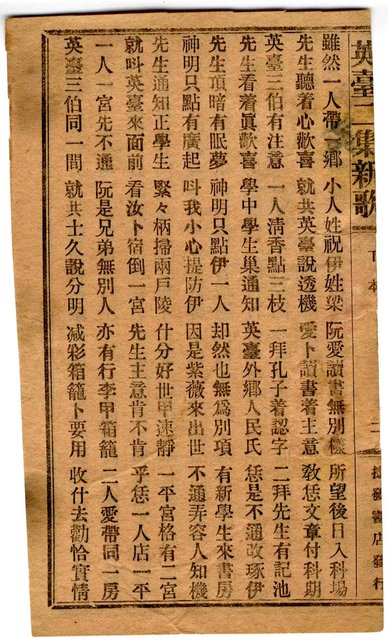 英臺二集新歌 下本 二 捷發書店發行
雖然一人帶一鄉 小人姓祝伊姓梁 阮愛讀書無別樣 所望後日入科場
先生聽着心歡喜 就共英臺說透機 愛卜讀書着主意 教恁文章付科期
英臺三伯有注意 一人淸香點三枝 一拜孔子着認字 二拜先生有記池
先生看着眞歡喜 學中學生巢通知 英臺外鄉人民氏 恁是不通改琢伊
先生頂暗有眠夢 神明只點伊一人 却然也無為別項 有新學生來書房
神明只點有廣起 呌我小心提防伊 因是紫薇來出世 不通弄容人知機
先生通知正學生 緊々柄掃兩戸陵 什分好世甲速靜 一平宮格有二宮
就呌英臺來面前 看汝卜宿倒一宮 先生主意肯不肯 乎恁一人店一平
一人一宮先不通 阮是兄弟無別人 亦有行李甲箱籠 二人愛帶同一房
英臺三伯同一間 就共士久說分明 减彩箱籠卜要用 收什去勸恰實情